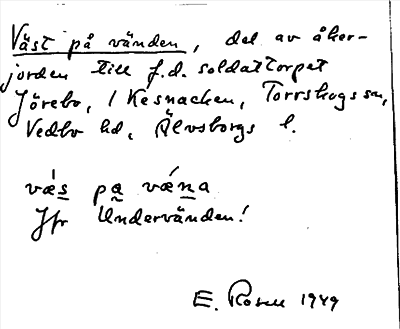 Väst på vänden, del av åker-
jorden till f.d. soldattorpet
Jörebo, 1 Kesnacken, Torrskogs sn,
Vedbo hd, Älvsborgs l.
væ̀s pa vǽna
Jfr Undervänden!
E. Rosell 1949